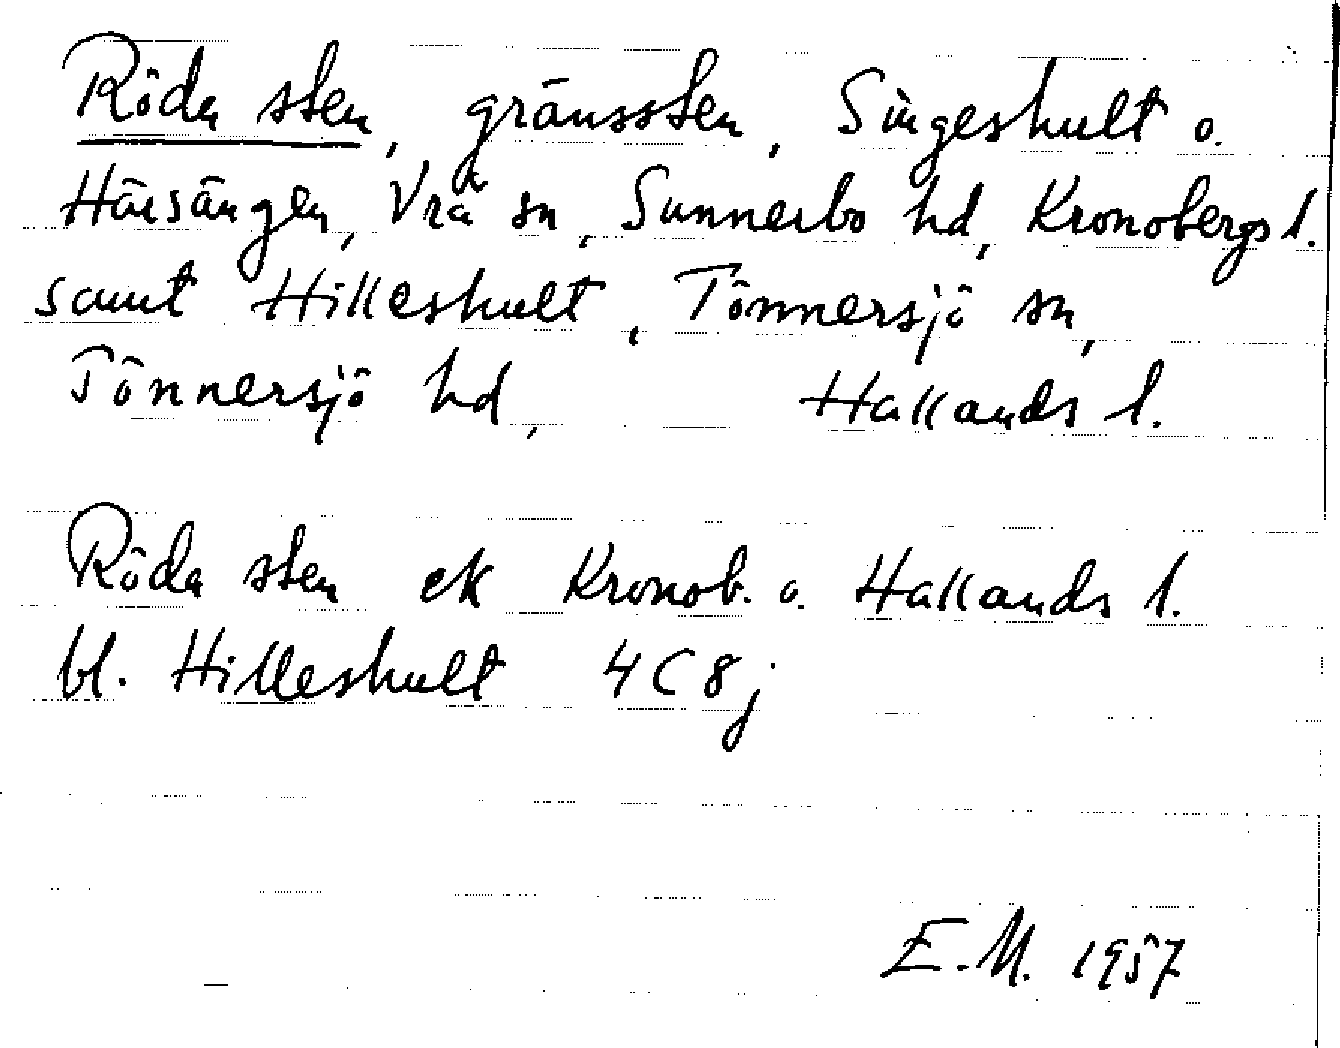 Röda sten, gränssten, Singeshult o.
Härsängen, Vrå sn, Sunnerbo hd, Kronobergs l.
samt Hilleshult, Tönnersjö sn,
Tönnersjö hd, Hallands l.
Röda sten ek Kronob. o. Hallands l.
bl. Hilleshult 4C8j
E.M. 1957